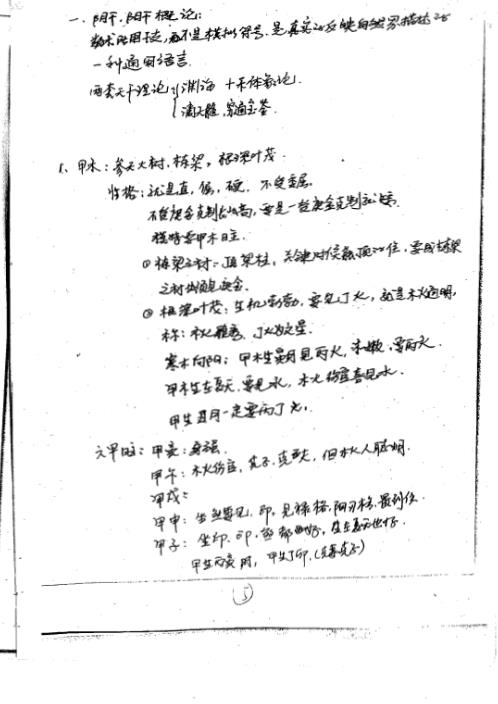 一、阳干、阴干概论：
数术所用干支，而不是模拟符号，是真实的反映自然界描述的
一种通用语言．
两套天干理论 渊海 十天体象论．
滴天髓，穷通宝鉴．
1、甲木：参天大树．栋梁，根深叶茂．
性格：就是直，倔，硬．不受委屈．
不能庚金克制
甲木日主．
① 栋梁之材：顶梁柱，关键时候能顶的住，要成栋梁
之材必须见庚金．
② 根深叶茂：生机勃勃，要见丁火，就是木火通明，
称：木火
丁火为文星．
寒木向阳：甲木生寅月见丙火，木嫩，要丙火．
甲木生在夏天，要见水，木火伤官喜见水．
甲生丑月一定要丙丁火．
六甲日主：甲寅：身强．
甲午：木火伤官，克子，克丈夫，但木火人聪明．
甲戌：
甲申：坐煞要见．印，见禄格，阳刃格，最到位．
甲子：坐印．
生在夏天也好．
甲生丙寅 时，甲生丁卯．